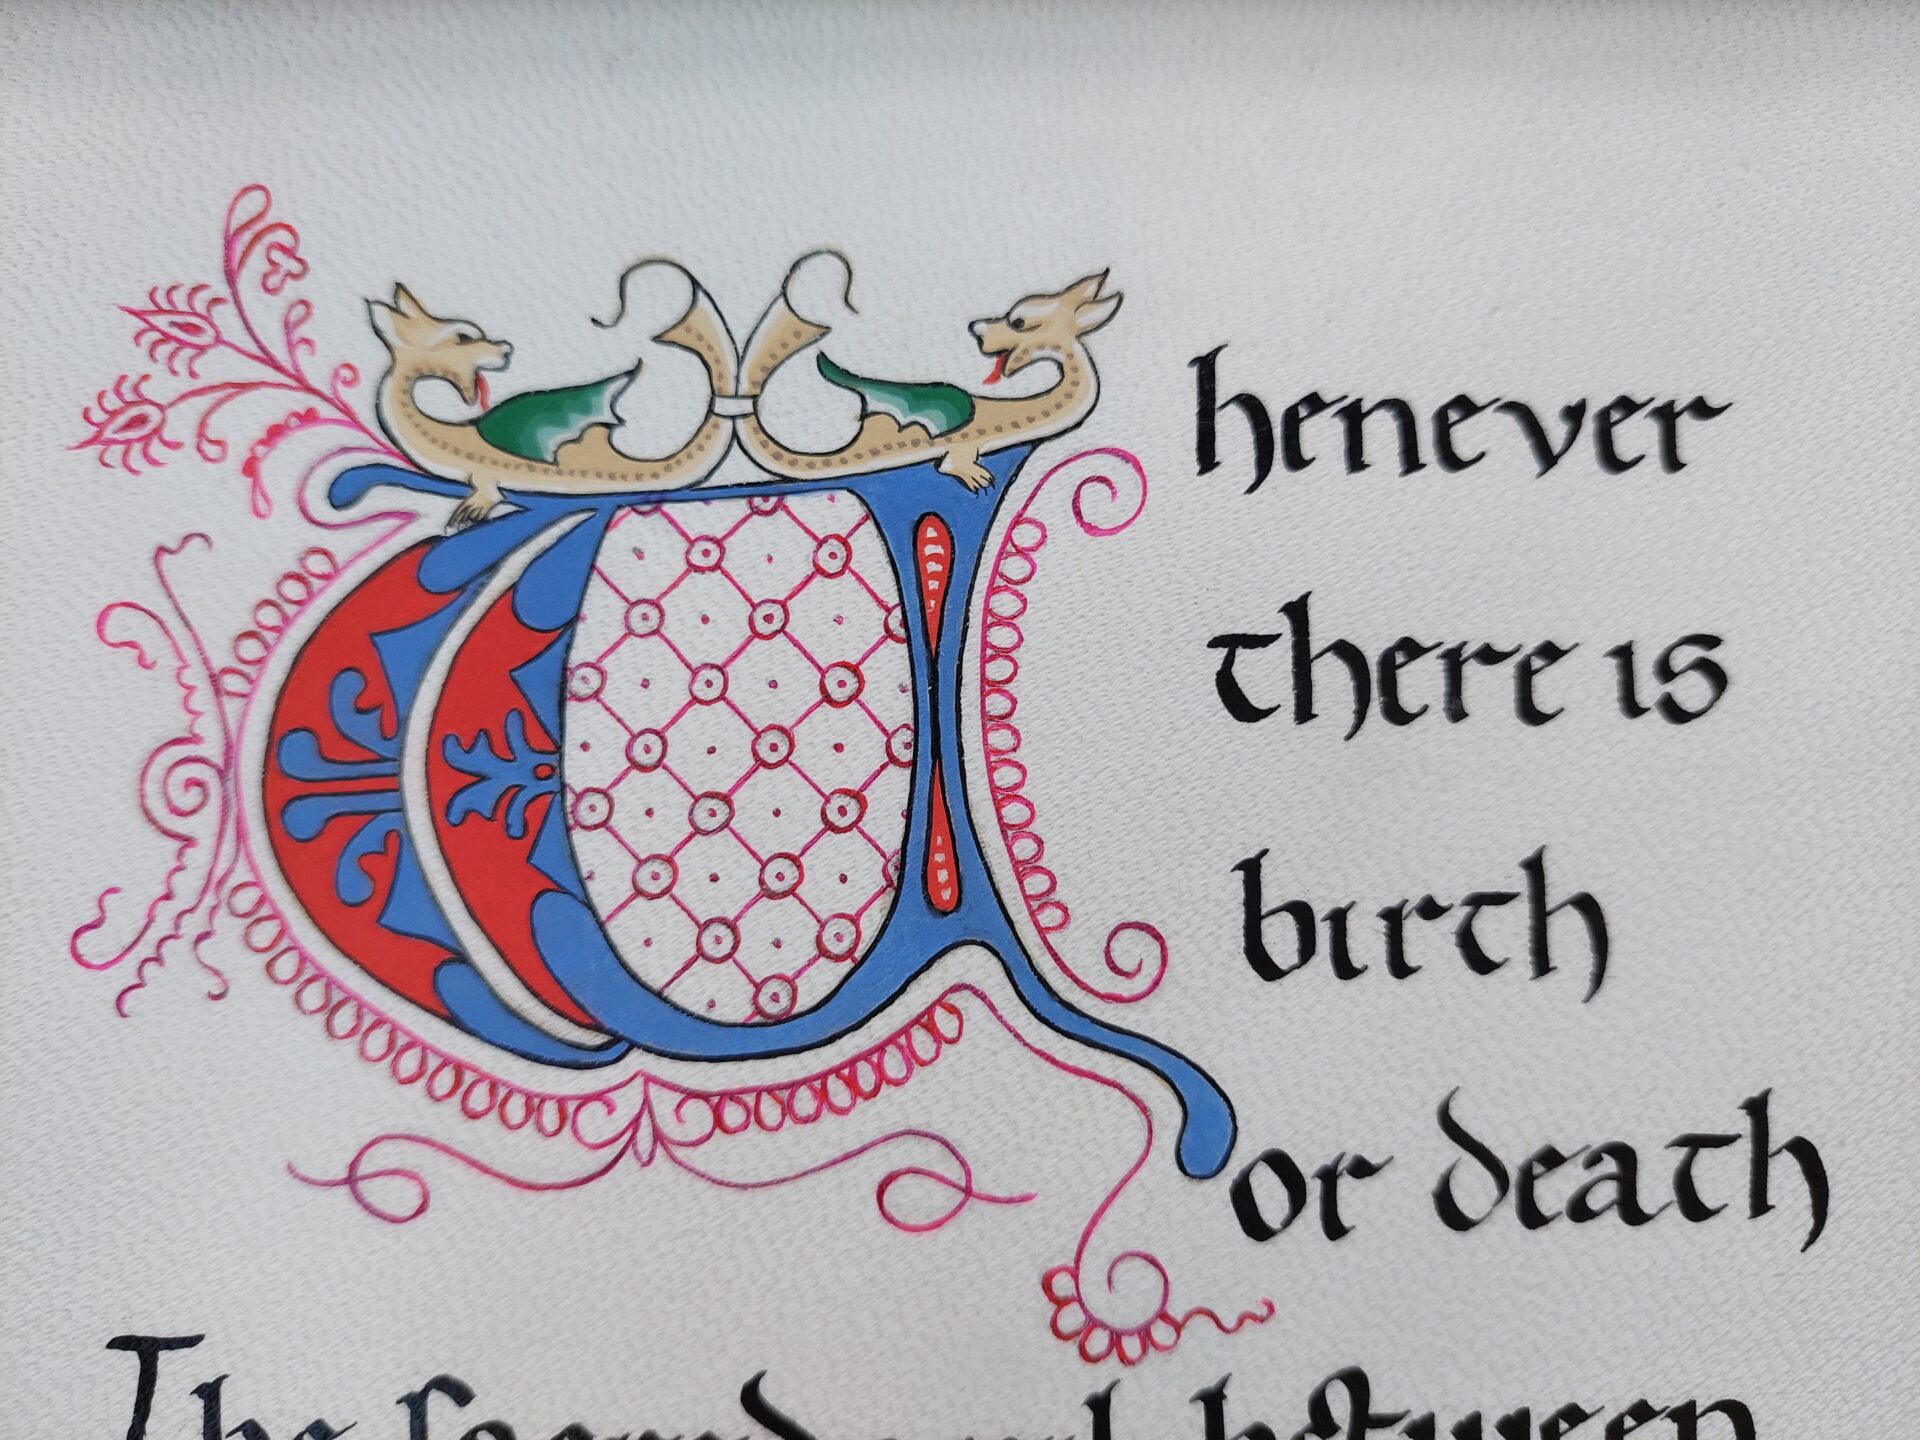 Whenever
there is
birth
or death
The sacred veil between